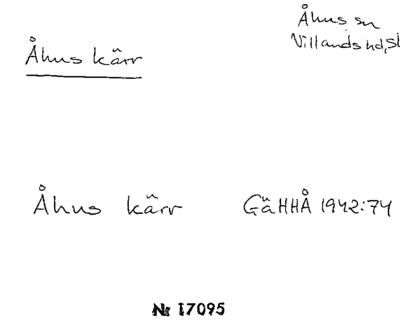 Åhus kärr
Åhus sn
Villands hd, Sk
Åhus kärr
GäHHÅ 1942:74
Nr 17095